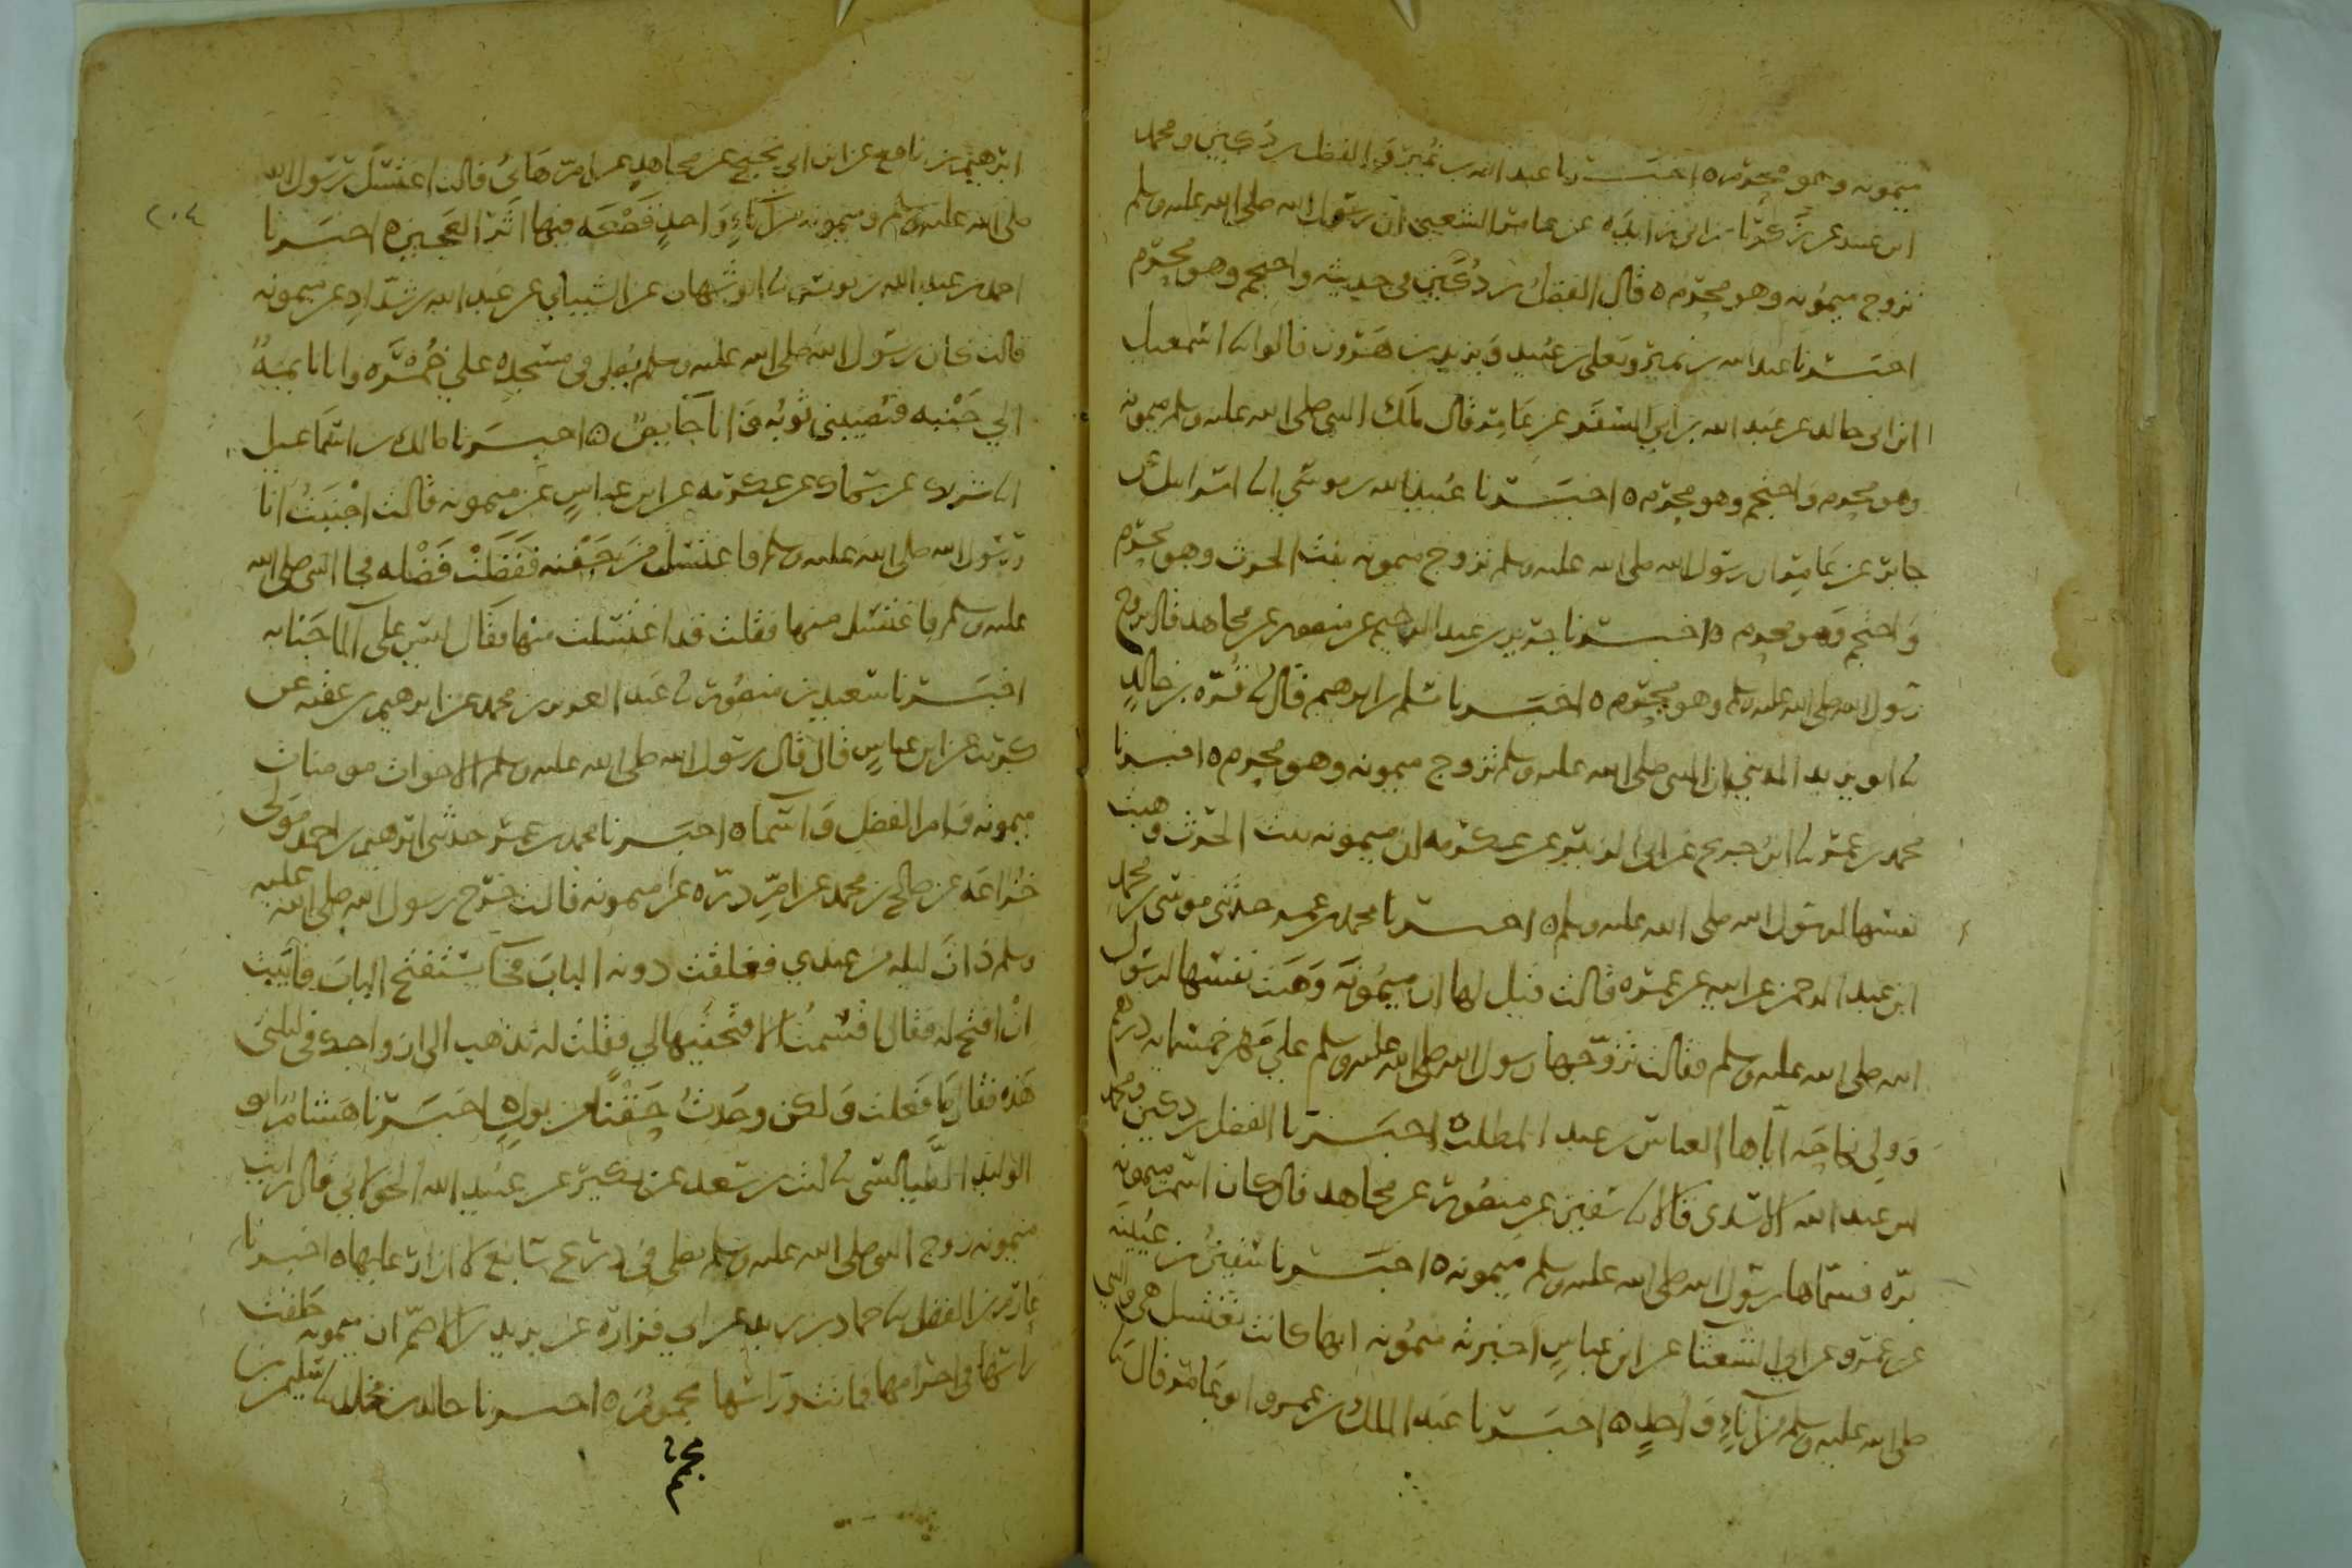 ميمونه وهو محرم ه اخبرنا عبد الله بن نمير والفضل بن دكين ومحمد
ابن عبيد عن زكريا بن ابي زايده عن عامر الشعبي ان رسول الله صلى الله عليه وسلم
تزوج ميمونه وهو محرم ه قال الفضل بن دكين في حديثه واحتجم وهو محرم
اخبرنا عبد الله بن نمير ويعلى بن عبيد ويزيد بن هرون قالوا نا اسمعيل
ابن ابي خالد عن عبد الله بن ابي السفر عن عامر قال ملك النبي صلى الله عليه وسلم ميمونه
وهو محرم واحتجم وهو محرم ه اخبرنا عبيد الله بن موسى انا اسرايل عن
جابر عن عامر ان رسول الله صلى الله عليه وسلم تزوج ميمونه بنت الحرث وهو محرم
واحتجم وهو محرم ه اخبرنا جرير بن عبد الحميد عن منصور عن مجاهد قال تزوج
رسول الله صلى الله عليه وسلم وهو محرم ه اخبرنا مسلم بن ابرهيم قال نا قره بن خالد
نا ابو يزيد المديني ان النبي صلى الله عليه وسلم تزوج ميمونه وهو محرم ه اخبرنا
محمد بن عمر نا ابن جريج عن ابي الزبير عن عكرمه ان ميمونه بنت الحرث وهبت
نفسها لرسول الله صلى الله عليه وسلم ه اخبرنا محمد بن عمر حدثني موسى بن محمد
ابن عبد الرحمن عن ابيه عن عمره قالت قيل لها ان ميمونه وهبت نفسها لرسول
الله صلى الله عليه وسلم فقالت تزوجها رسول الله صلى الله عليه وسلم على مهر خمسمايه درهم
وولي نكاحه اياها العباس بن عبد المطلب ه اخبرنا الفضل بن دكين ومحمد
ابن عبد الله الاسدي قالا نا سفين عن منصور عن مجاهد قال كان اسم ميمونه
بره فسماها رسول الله صلى الله عليه وسلم ميمونه ه اخبرنا سفين بن عيينه
عن عمرو عن ابي الشعثا عن ابن عباس اخبرته ميمونه انها كانت تغتسل هي والنبي
صلى الله عليه وسلم من اناء واحد ه اخبرنا عبد الملك بن عمرو ابو عامر قال نا
٢٠٤
ابرهيم بن نافع عن ابن ابي نجيح عن مجاهد عن ام هاني قالت اغتسل رسول الله
صلى الله عليه وسلم وميمونه من اناء واحد قصعه فيها اثر العجين ه اخبرنا
احمد بن عبد الله بن يونس نا ابو شهاب عن الشيباني عن عبد الله بن شداد عن ميمونه
قالت كان رسول الله صلى الله عليه وسلم يصلي في مسجده على خمره وانا نايمه
الى جنبه فتصيبني ثوبه وانا حايض ه اخبرنا مالك بن اسماعيل
انا شريك عن سماك عن عكرمه عن ابن عباس عن ميمونه قالت اجنبت انا
ورسول الله صلى الله عليه وسلم فاغتسلت من جفنه ففضلت فضله فجا النبي صلى الله
عليه وسلم فاغتسل منها فقلت قد اغتسلت منها فقال ليس على الما جنابه
اخبرنا سعيد بن منصور نا عبد العزيز بن محمد عن ابرهيم بن عقبه عن
كريب عن ابن عباس قال قال رسول الله صلى الله عليه وسلم الاخوات مومنات
ميمونه وام الفضل واسما ه اخبرنا محمد بن عمر حدثني ابرهيم بن احمد مولى
خزاعه عن صالح بن محمد عن ام دره عن ميمونه قالت خرج رسول الله صلى الله عليه
وسلم ذات ليله من عندي فغلقت دونه الباب فجا يستفتح الباب فابيت
ان افتح له فقال اقسمت الا فتحتيها لي فقلت له تذهب الى ازواجك في ليلتي
هذه فقال ما فعلت ولكن وجدت حقنا من بول ه اخبرنا هشام ابو
الوليد الطيالسي نا ليث بن سعد عن بكير عن عبيد الله الخولاني قال رايت
ميمونه زوج النبي صلى الله عليه وسلم تصلي في درع سابغ لا ازار عليها ه اخبرنا
عارم بن الفضل نا حماد بن زيد عن ابي فزاره عن يزيد بن الاصم ان ميمونه حلقت
راسها في احرامها فماتت وراسها مجمم ه اخبرنا خالد بن مخلد نا سليمن بن